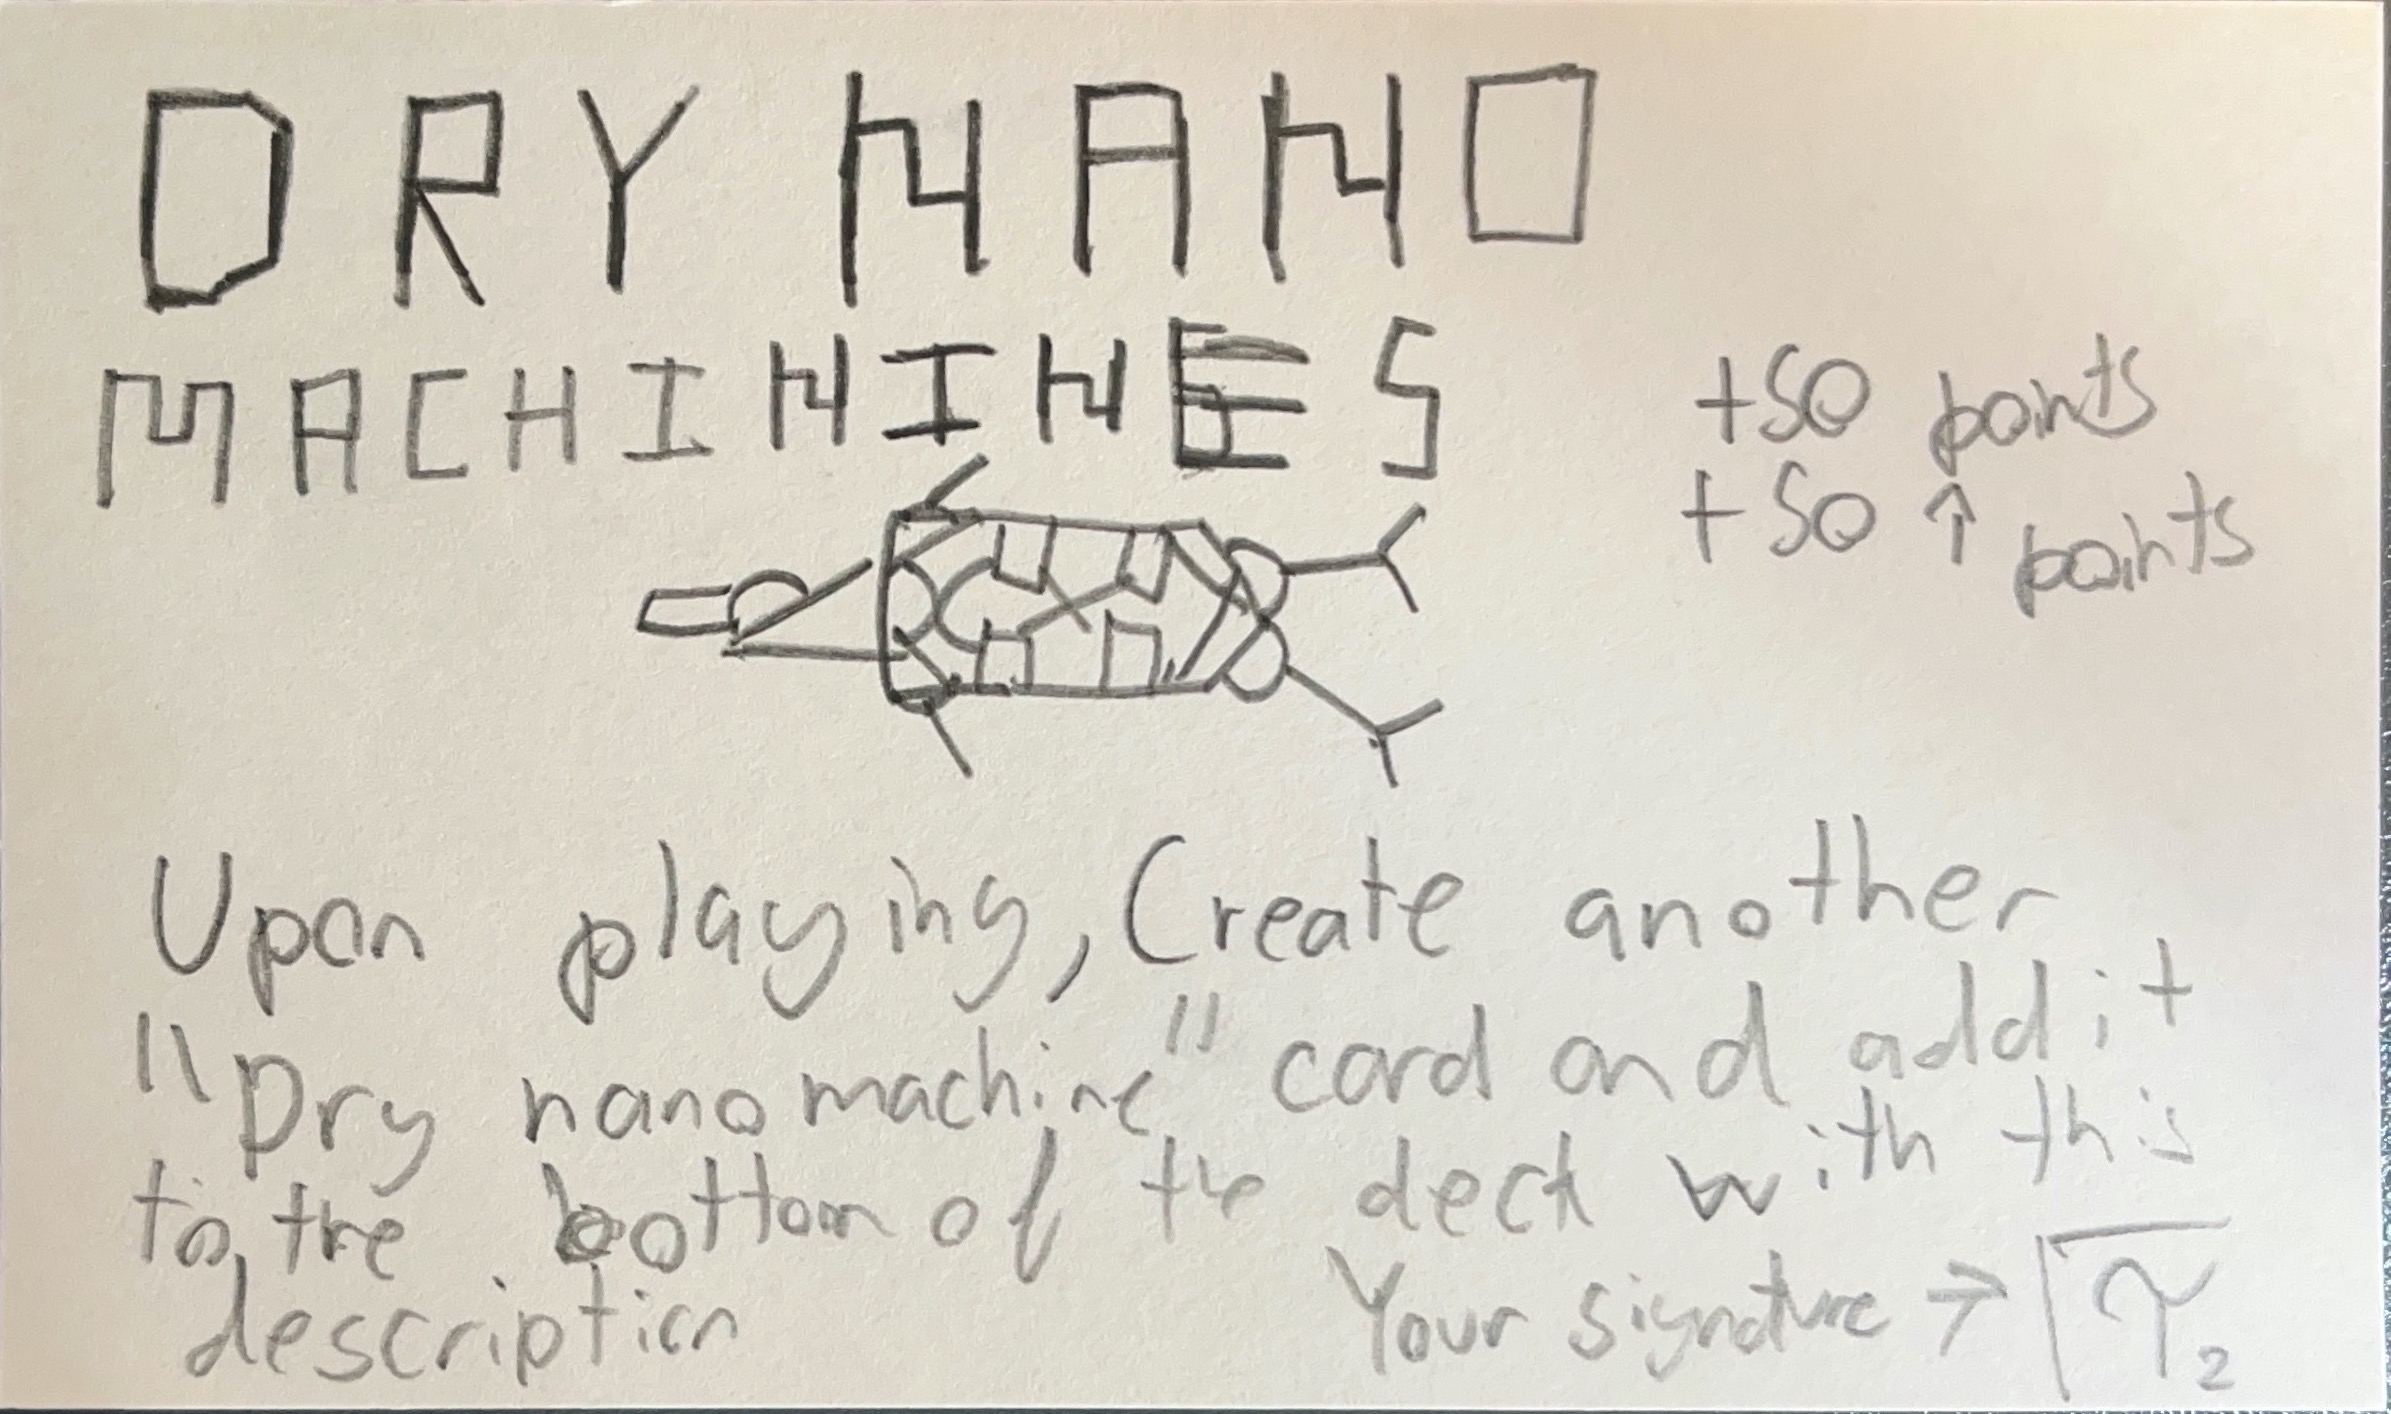 DRY NANO
MACHINES
+50 points
+50 ↑ points
Upon playing, Create another
"Dry nanomachine" card and add it
to the bottom of the deck with this
description
Your signature →